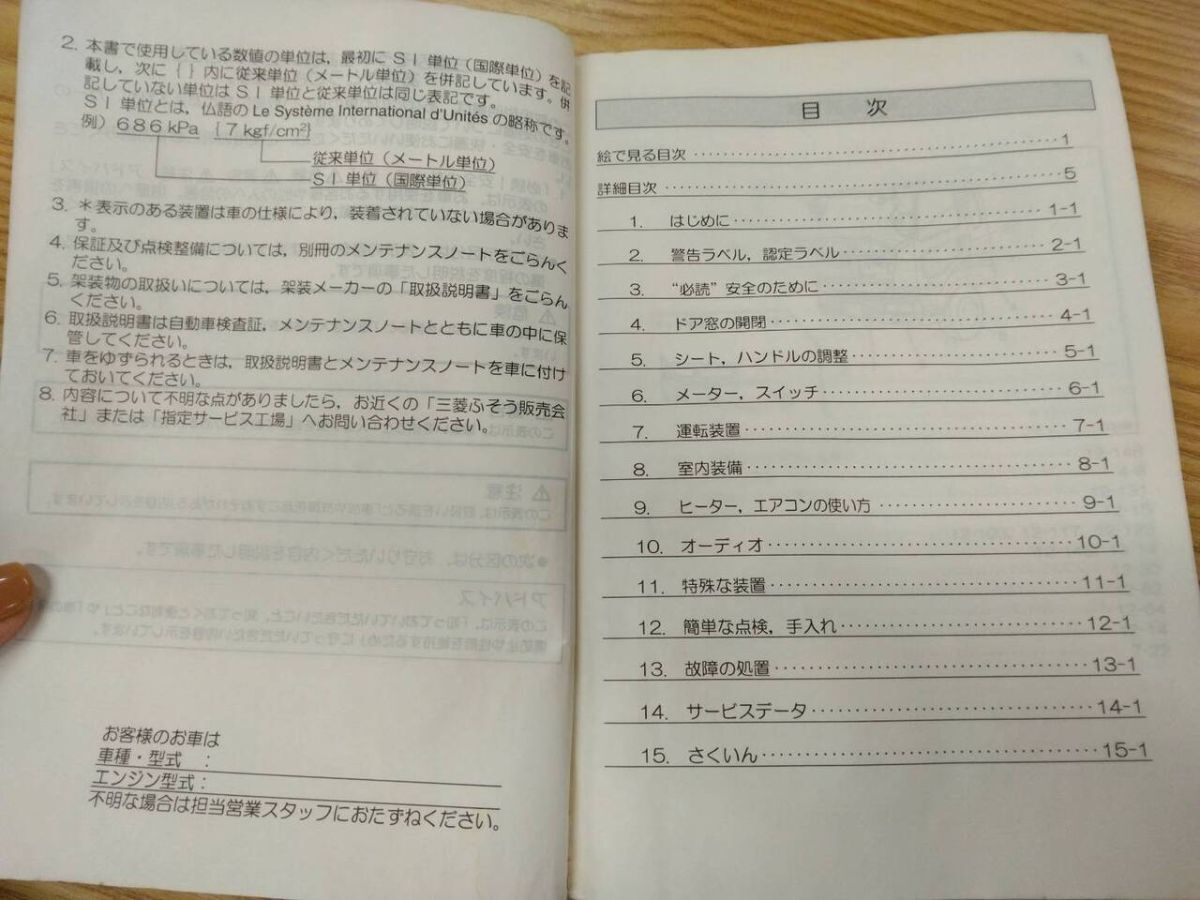 2. 本書で使用している数値の単位は，最初にＳＩ単位（国際単位）を記
載し，次に｛ ｝内に従来単位（メートル単位）を併記しています。併
記していない単位はＳＩ単位と従来単位は同じ表記です。
ＳＩ単位とは，仏語の Le Système International d'Unités の略称です。
例）686 kPa ｛7 kgf/cm²｝
従来単位（メートル単位）
ＳＩ単位（国際単位）
3. ＊表示のある装置は車の仕様により，装着されていない場合がありま
す。
4. 保証及び点検整備については，別冊のメンテナンスノートをごらんく
ださい。
5. 架装物の取扱いについては，架装メーカーの「取扱説明書」をごらん
ください。
6. 取扱説明書は自動車検査証，メンテナンスノートとともに車の中に保
管してください。
7. 車をゆずられるときは，取扱説明書とメンテナンスノートを車に付け
ておいてください。
8. 内容について不明な点がありましたら，お近くの「三菱ふそう販売会
社」または「指定サービス工場」へお問い合わせください。
お客様のお車は
車種・型式 ：
エンジン型式：
不明な場合は担当営業スタッフにおたずねください。
目 次
絵で見る目次 ････････････････････ 1
詳細目次 ････････････････････ 5
1. はじめに ････････････････････ 1-1
2. 警告ラベル，認定ラベル ････････････････････ 2-1
3. “必読”安全のために ････････････････････ 3-1
4. ドア窓の開閉 ････････････････････ 4-1
5. シート，ハンドルの調整 ････････････････････ 5-1
6. メーター，スイッチ ････････････････････ 6-1
7. 運転装置 ････････････････････ 7-1
8. 室内装備 ････････････････････ 8-1
9. ヒーター，エアコンの使い方 ････････････････････ 9-1
10. オーディオ ････････････････････ 10-1
11. 特殊な装置 ････････････････････ 11-1
12. 簡単な点検，手入れ ････････････････････ 12-1
13. 故障の処置 ････････････････････ 13-1
14. サービスデータ ････････････････････ 14-1
15. さくいん ････････････････････ 15-1